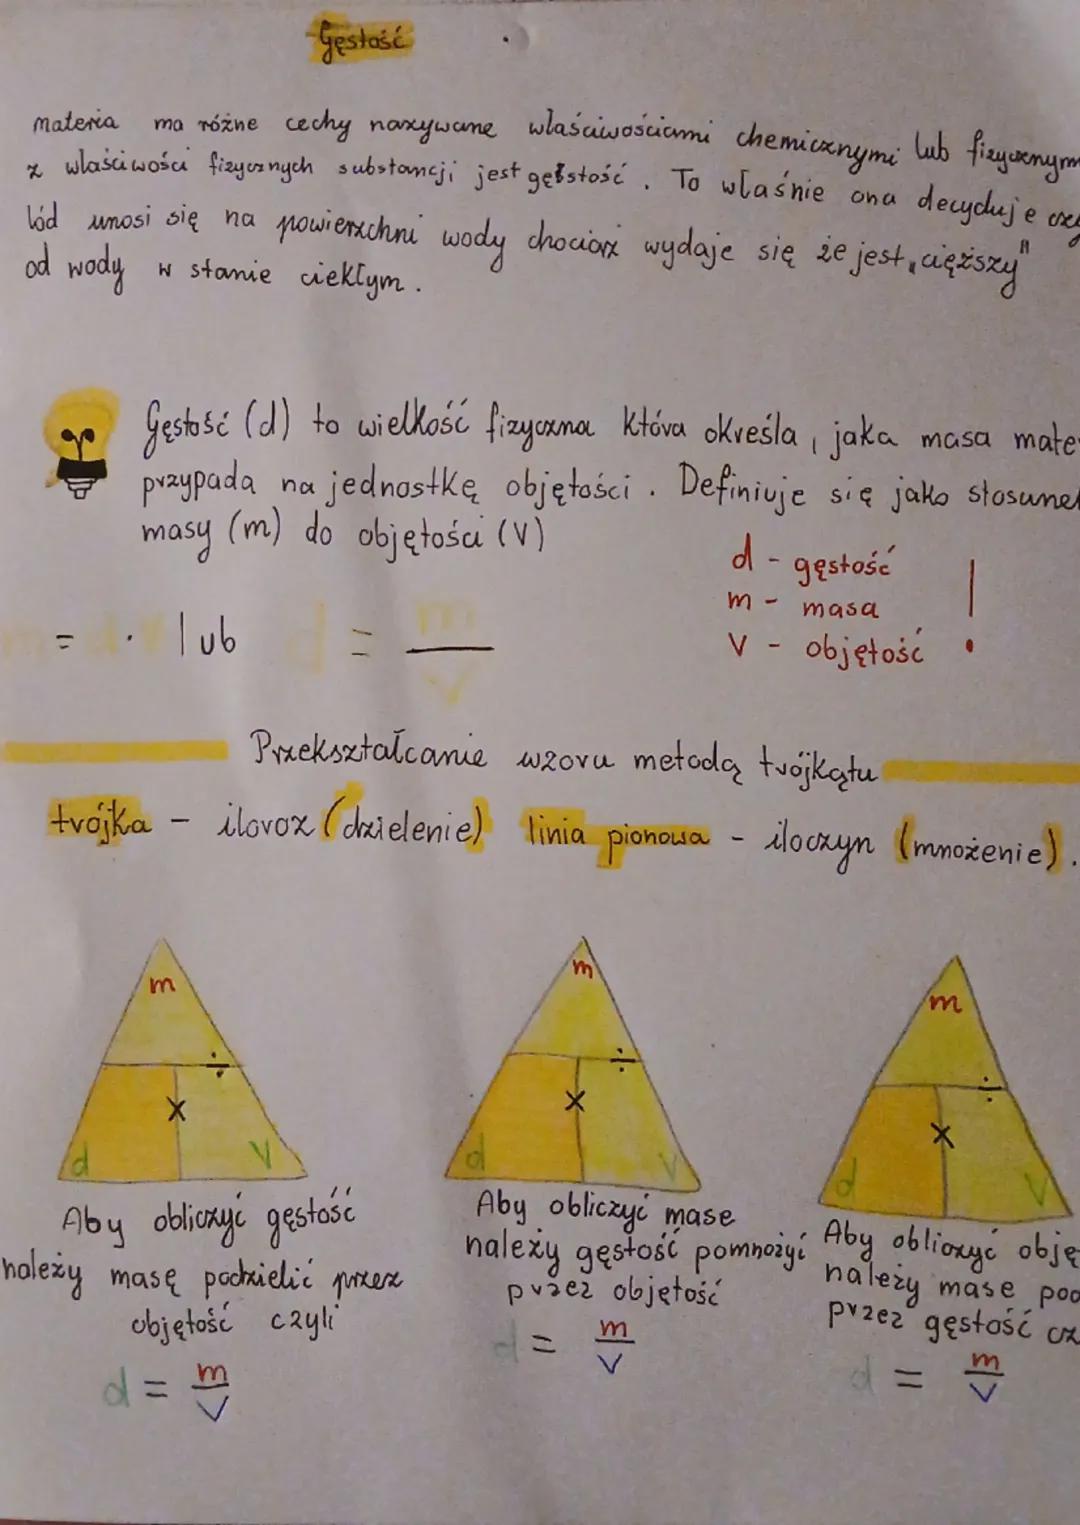 Gęstość
materia ma różne cechy nazywane właściwościami chemicznymi lub fizycznym
z właściwości fizycznych substancji jest gęstość. To właśnie ona decyduje czy
lód unosi się na powierzchni wody chociaż wydaje się że jest „cięższy"
od wody w stanie ciekłym.
Gęstość (d) to wielkość fizyczna która określa, jaka masa mate
przypada na jednostkę objętości. Definiuje się jako stosunek
masy (m) do objętości (V)
d - gęstość
m - masa
V - objętość !
= · lub d = m
V
Przekształcanie wzoru metodą trójkątu
trójka - iloroz (dzielenie) linia pionowa - iloczyn (mnożenie).
m ÷
d x V
m ÷
d x V
m ÷
d x V
Aby obliczyć gęstość
należy masę podzielić przez
objętość czyli
d = m
V
Aby obliczyć mase
należy gęstość pomnożyć
przez objętość
d = m
V
Aby obliczyć obję
należy mase pod
przez gęstość cz
d = m
V